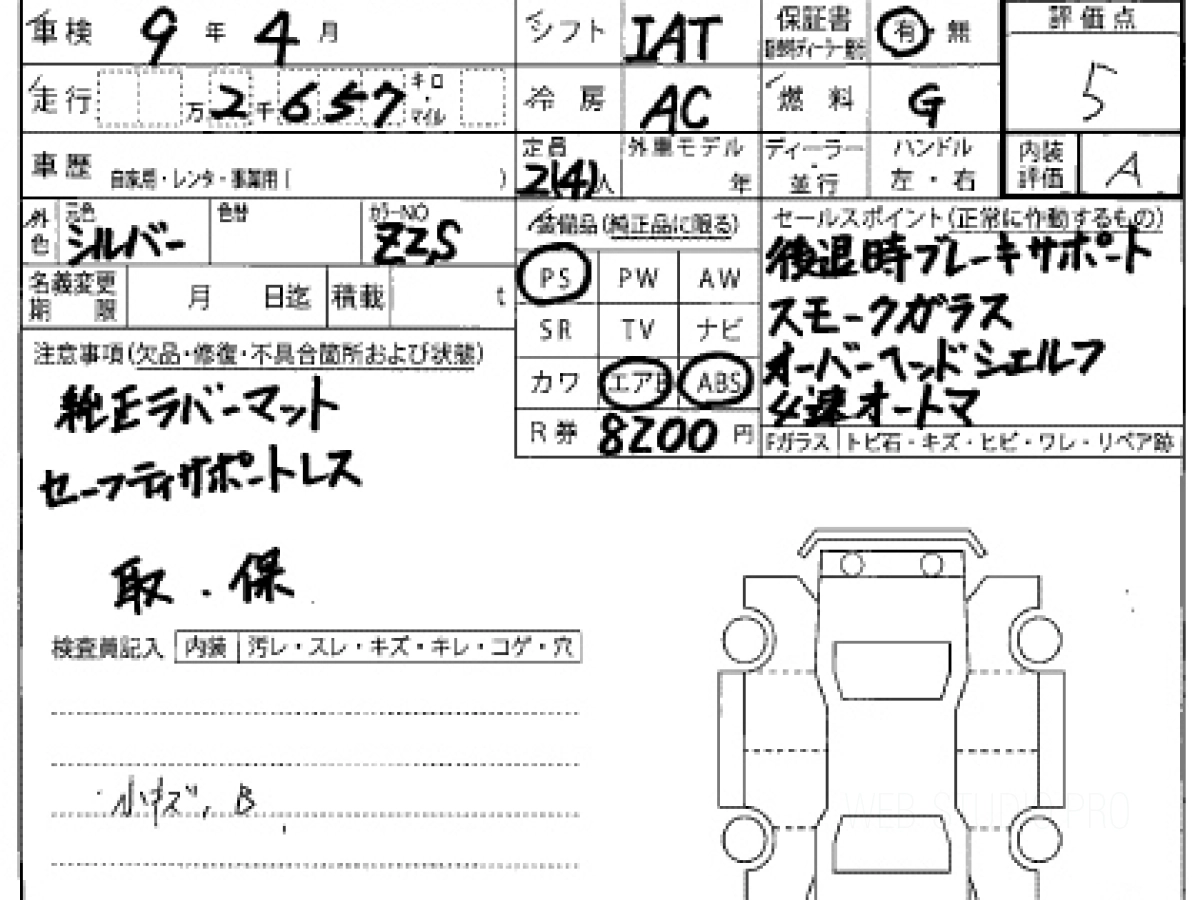 車検 9年 4月 シフト IAT 保証書 新車時ディーラー発行 有・無 評価点
走行 万2千657 キロ・マイル 冷房 AC 燃料 G 5
車歴 自家用・レンタ・事業用( ) 定員 2(4)人 外車モデル 年 ディーラー・並行 ハンドル 左・右 内装評価 A
外色 元色 シルバー 色替 カラーNO ZZS 装備品(純正品に限る) セールスポイント(正常に作動するもの)
名義変更期限 月 日迄 積載 t PS PW AW 後退時ブレーキサポート
SR TV ナビ スモークガラス
注意事項(欠品・修復・不具合箇所および状態) カワ エアB ABS オーバーヘッドシェルフ
純正ラバーマット 4速オートマ
R券 8200円 Fガラス トビ石・キズ・ヒビ・ワレ・リペア跡
セーフティサポートレス
取・保
検査員記入 内装 汚レ・スレ・キズ・キレ・コゲ・穴
小キズ、B
WEB STUDIO PRO